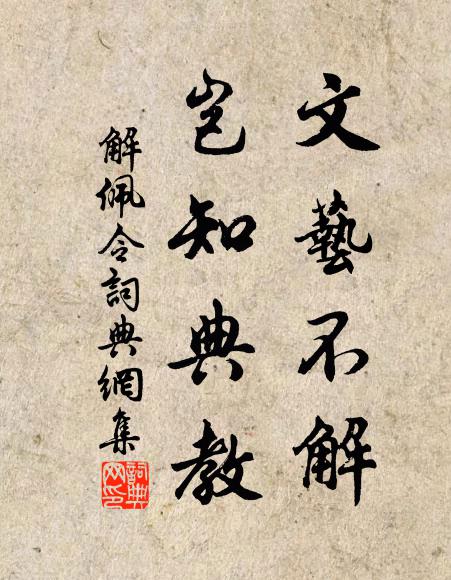 文藝不解
豈知典教
解佩令詞典網集
詞典網印